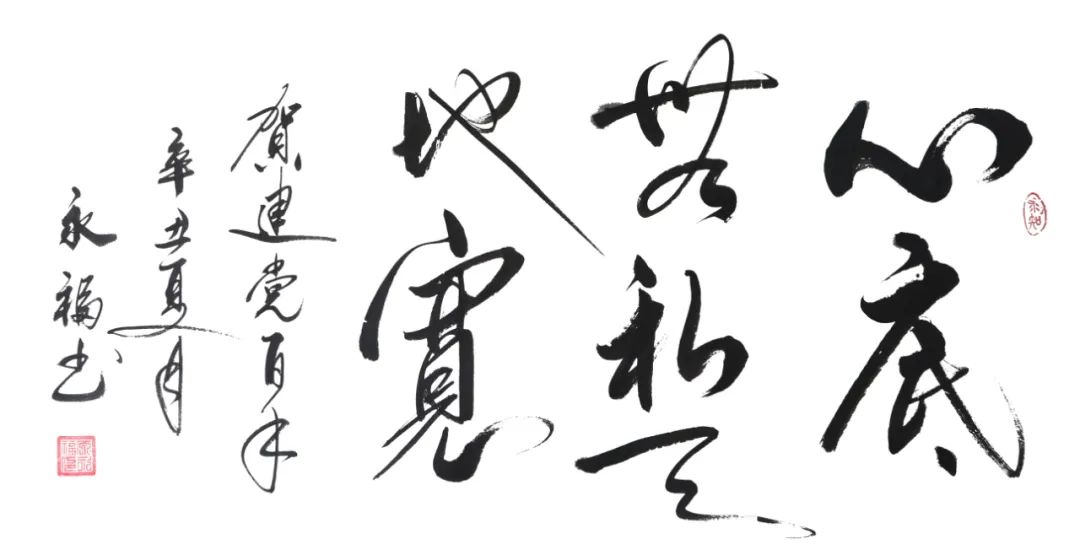 心底
無私天
地寬
賀建党百年
辛丑夏月
永福书